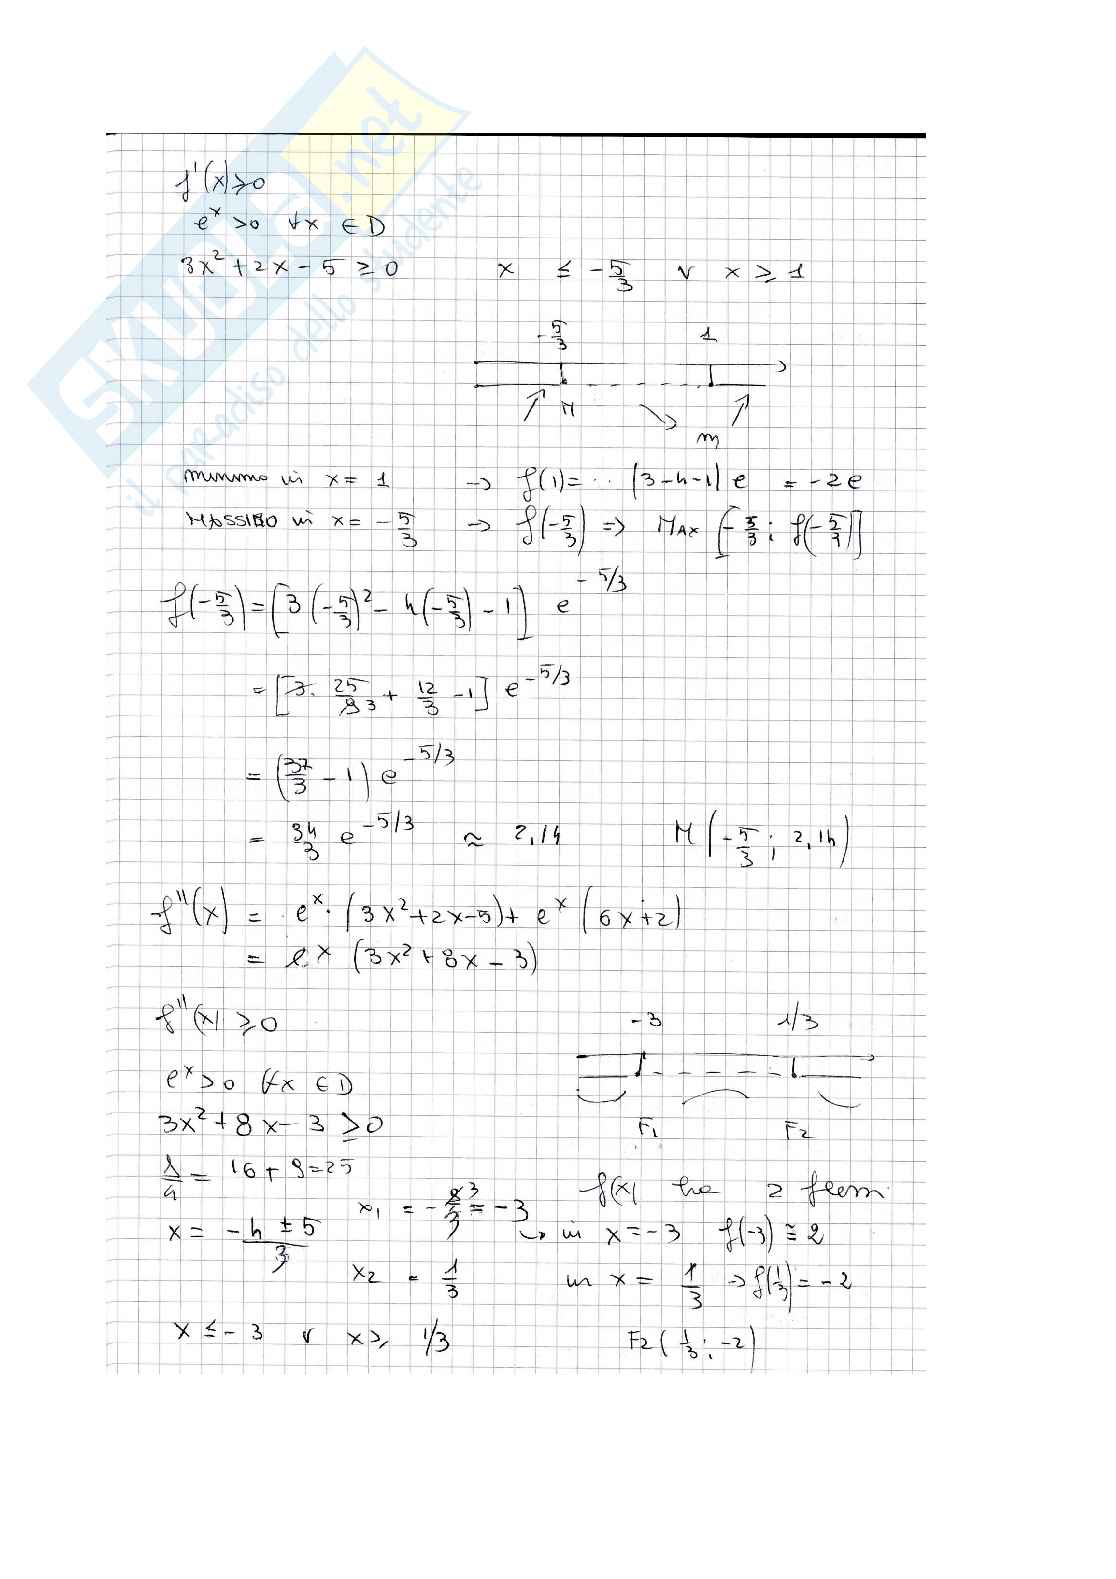 SKUOLA.net
il paradiso dello studente
f'(x)≥0
eˣ >0 ∀x ∈ D
3x² + 2x - 5 ≥ 0 x ≤ -5/3 v x ≥ 1
-5/3 1
M m
minimo in x = 1 → f(1) = ... (3-4-1) e = -2e
MASSIMO in x = -5/3 → f(-5/3) => MAX [-5/3 ; f(-5/3)]
f(-5/3) = [3 (-5/3)² - 4(-5/3) - 1] e^-5/3
= [3 · 25/9 3 + 12/3 - 1] e^-5/3
= (37/3 - 1) e^-5/3
= 34/3 e^-5/3 ≈ 2,14 M (-5/3 ; 2,14)
f''(x) = eˣ · (3x²+2x-5) + eˣ (6x+2)
= eˣ (3x² + 8x - 3)
f''(x) ≥ 0 -3 1/3
eˣ > 0 ∀x ∈ D
3x² + 8x - 3 ≥ 0 F1 F2
Δ/4 = 16 + 9 = 25
f(x) ha 2 flessi
x = -4 ± 5 / 3 x1 = -9/3 3 = -3 → in x = -3 f(-3) ≅ 2
x2 = 1/3 in x = 1/3 → f(1/3) = -2
x ≤ -3 v x ≥ 1/3 F2 (1/3 ; -2)